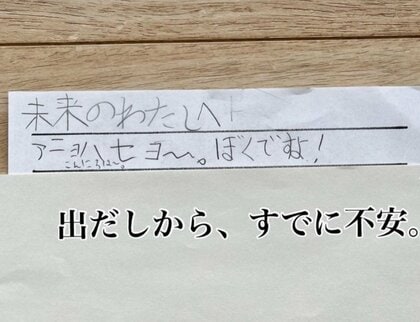 未来のわたしへ
アニョハセヨ〜。ぼくですね!
こんにちは〜。
出だしから、すでに不安。